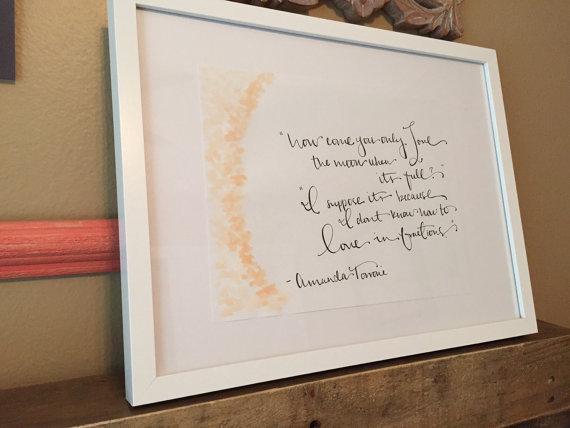 "how come you only love
the moon when
it's full?"
"I suppose it's because
I don't know how to
love in fractions."
- Amanda Torroni